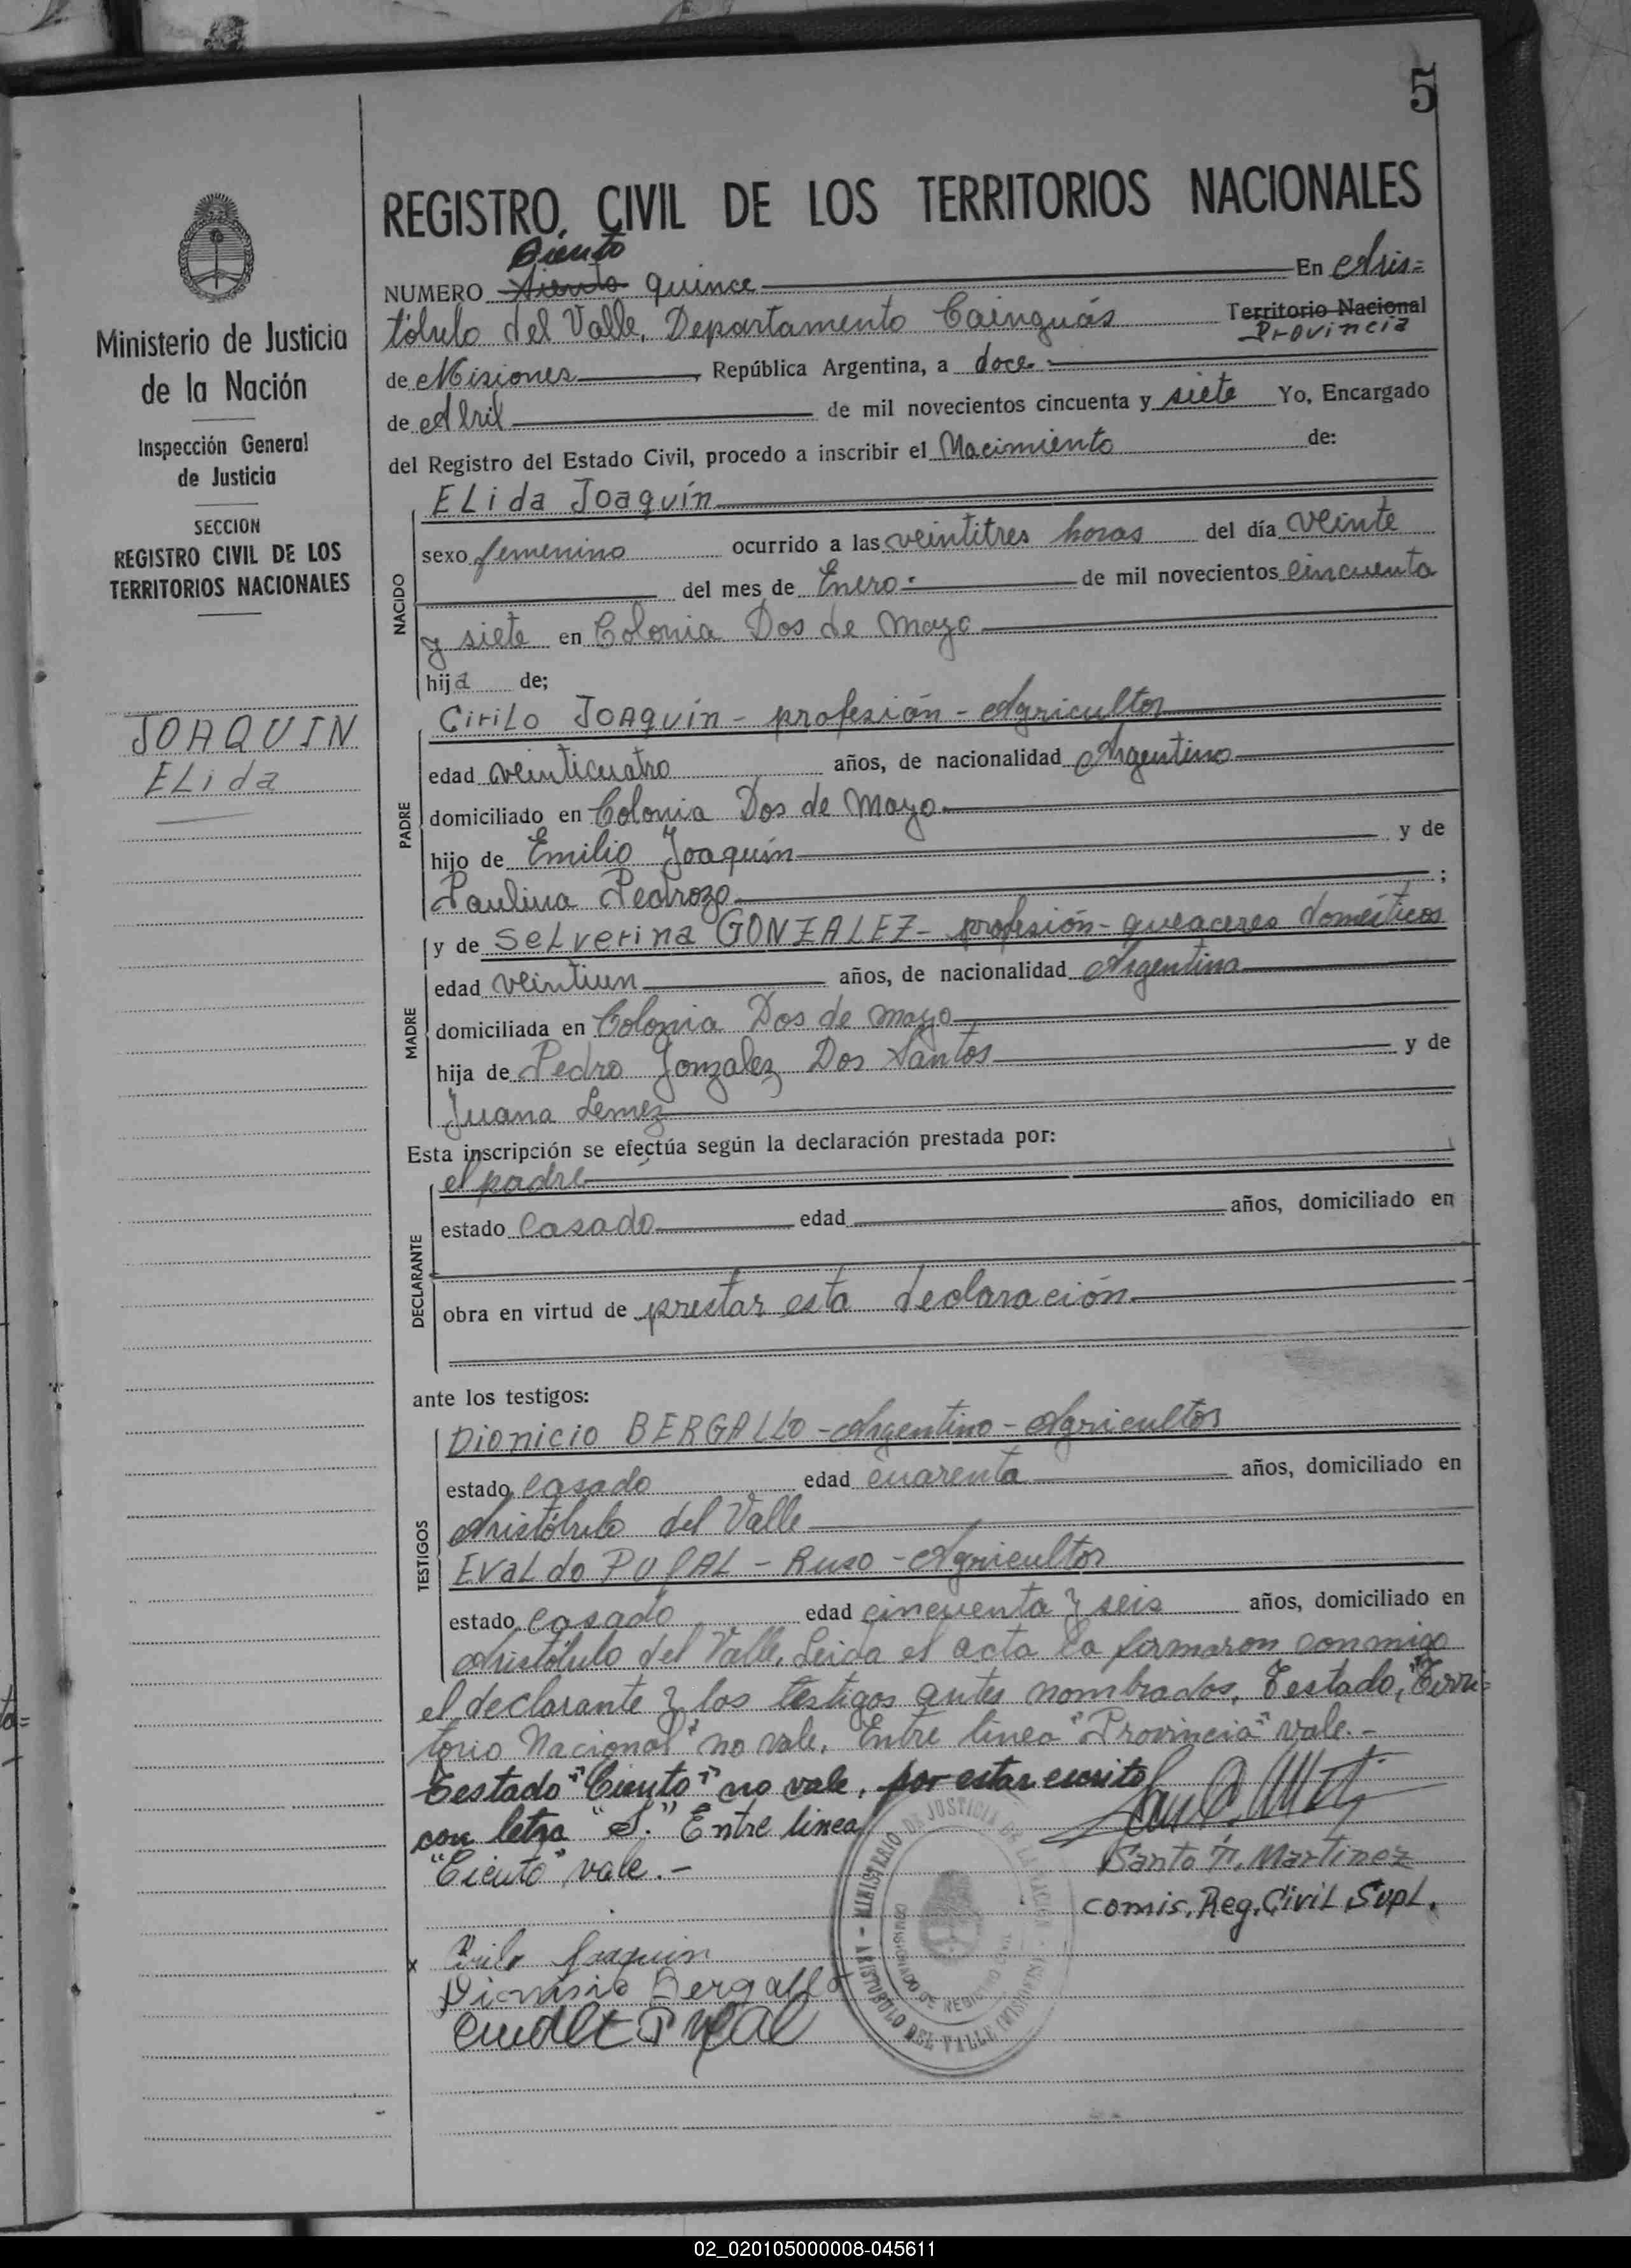 5
REGISTRO CIVIL DE LOS TERRITORIOS NACIONALES
Ciento
NUMERO Siento quince En Aris=
tóbulo del Valle, Departamento Cainguás Territorio Nacional
Provincia
de Misiones, República Argentina, a doce
de Abril de mil novecientos cincuenta y siete Yo, Encargado
del Registro del Estado Civil, procedo a inscribir el Nacimiento de:
Ministerio de Justicia
de la Nación
Inspección General
de Justicia
SECCION
REGISTRO CIVIL DE LOS
TERRITORIOS NACIONALES
JOAQUIN
ELida
NACIDO
ELida Joaquín
sexo femenino ocurrido a las veintitres horas del día veinte
del mes de Enero de mil novecientos cincuenta
y siete en Colonia Dos de Mayo
hija de;
PADRE
CiriLo JOAquín - profesión - Agricultor
edad veinticuatro años, de nacionalidad Argentino
domiciliado en Colonia Dos de Mayo
hijo de Emilio Joaquín y de
Paulina Pedrozo ;
MADRE
y de SeLverina GONZALEZ - profesión - queaceres domésticos
edad veintiun años, de nacionalidad Argentina
domiciliada en Colonia Dos de mayo
hija de Pedro Gonzalez Dos Santos y de
Juana Lemez
Esta inscripción se efectúa según la declaración prestada por:
DECLARANTE
el padre
estado casado edad años, domiciliado en
obra en virtud de prestar esta declaración
ante los testigos:
TESTIGOS
Dionicio BERGALLO - Argentino - Agricultor
estado casado edad cuarenta años, domiciliado en
Aristóbulo del Valle
EvaLdo PUfAL - Ruso - Agricultor
estado casado edad cincuenta y seis años, domiciliado en
Aristóbulo del Valle. Leida el acta la firmaron conmigo
el declarante y los testigos antes nombrados. Testado, "Terri=
torio Nacional" no vale. Entre linea "Provincia" vale.-
Testado "Ciento" no vale, por estar escrito
con letra "S." Entre linea
"Ciento" vale.-
Santo Martinez
comis. Reg. CiviL SupL.
MINISTERIO DE JUSTICIA DE LA NACION - ARISTOBULO DEL VALLE (MISIONES) -
x Cirilo Joaquin
Dionisio Bergallo
02_020105000008-045611